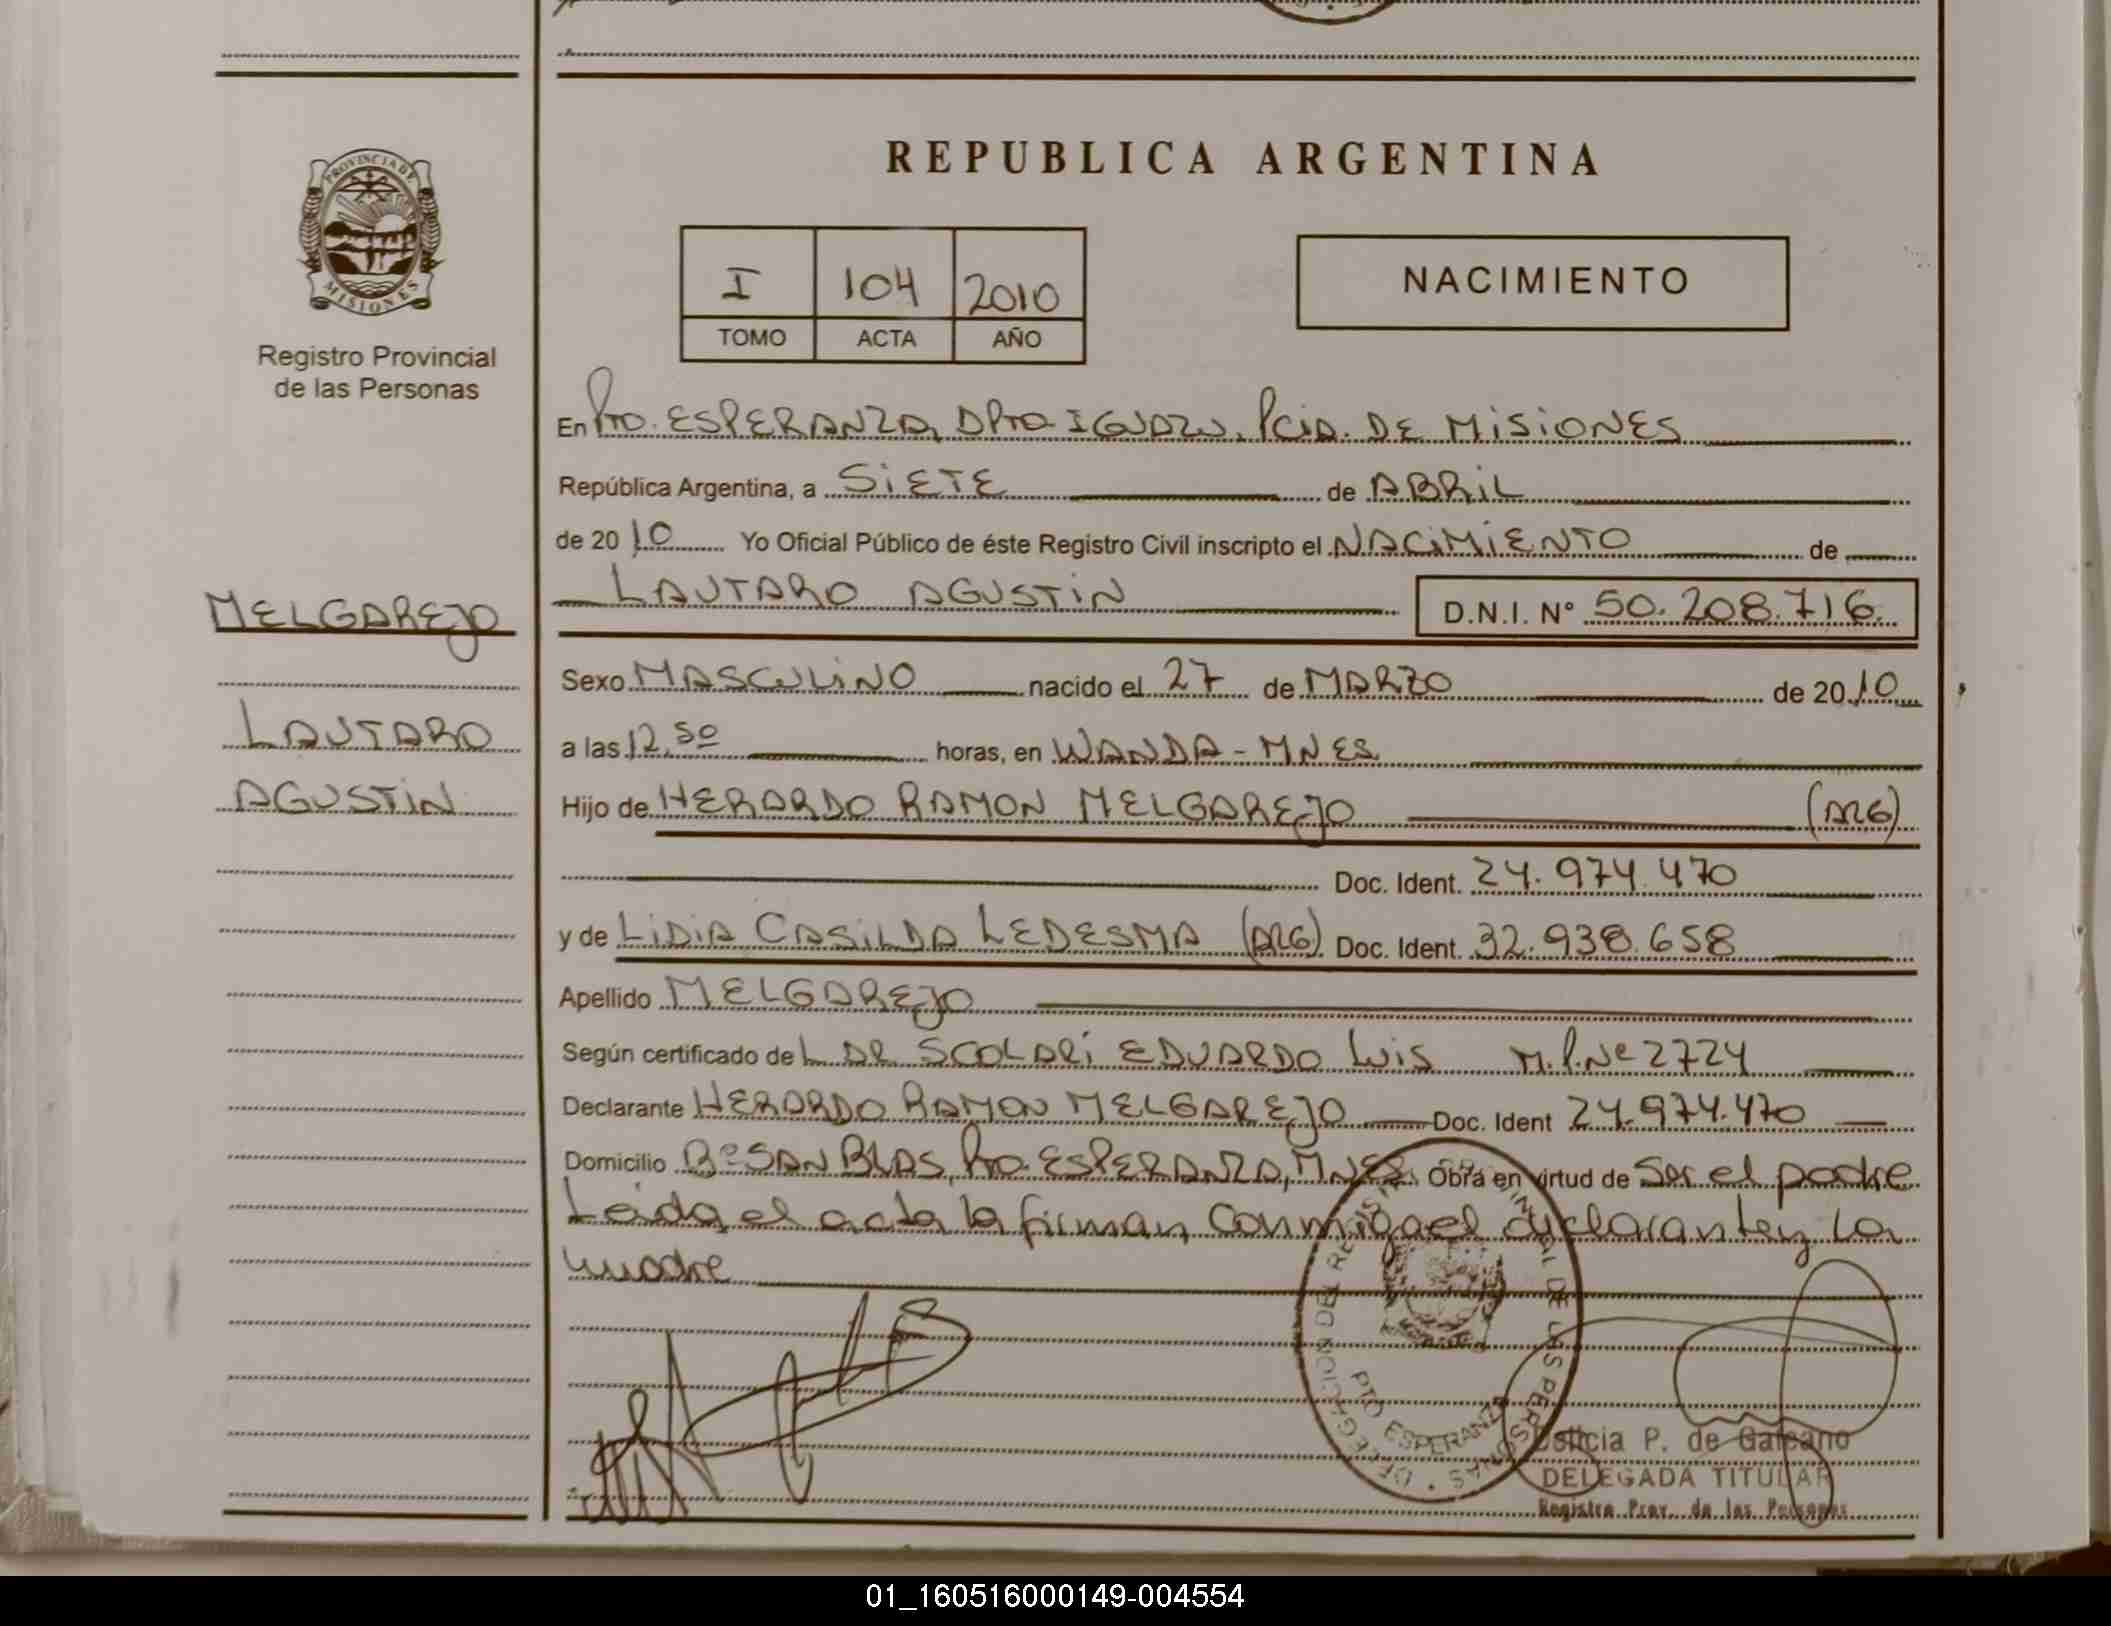 PROVINCIA DE
MISIONES
Registro Provincial
de las Personas
MELGAREJO
LAUTARO
AGUSTIN
REPUBLICA ARGENTINA
I 104 2010
TOMO ACTA AÑO
NACIMIENTO
En Pto. ESPERANZA, DPto IGUAZU, Pcia. DE MISIONES
República Argentina, a SIETE de ABRIL
de 2010 Yo Oficial Público de éste Registro Civil inscripto el NACIMIENTO de
LAUTARO AGUSTIN D.N.I. N° 50.208.716.
Sexo MASCULINO nacido el 27 de MARZO de 2010
a las 12,50 horas, en WANDA - MNES
Hijo de HERARDO RAMON MELGAREJO (ARG)
Doc. Ident. 24.974.470
y de LIDIA CASILDA LEDESMA (ARG) Doc. Ident. 32.938.658
Apellido MELGAREJO
Según certificado de L DR SCOLARI EDUARDO LUIS M.P.Nº 2724
Declarante HERARDO RAMON MELGAREJO Doc. Ident 24.974.470
Domicilio Bº SAN BLAS, Pto. ESPERANZA, MNES. Obra en virtud de Ser el padre
Leida el acta la firman conmigo el declarante y la
madre
DELEGACION DEL REGISTRO PROVINCIAL DE LAS PERSONAS
PTO ESPERANZA
P. de Galeano
DELEGADA TITULAR
Registro Prov. de las Personas
01_160516000149-004554